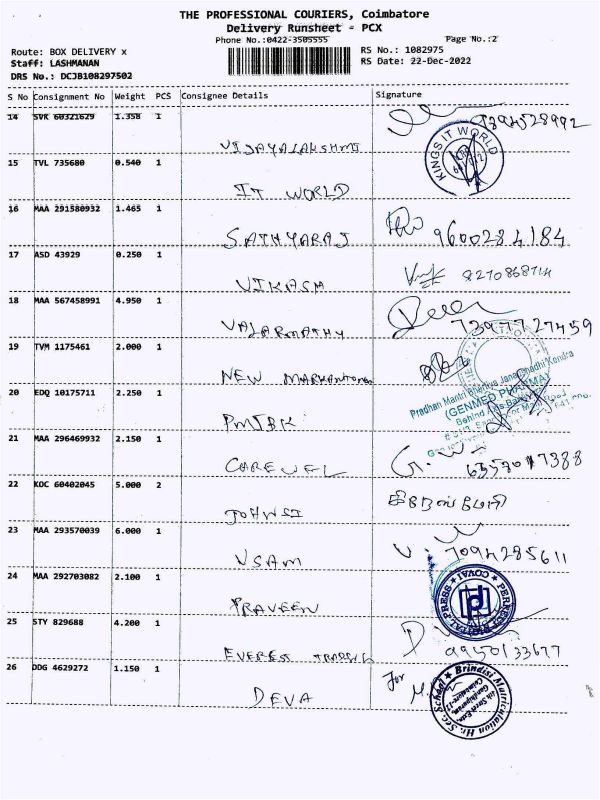 THE PROFESSIONAL COURIERS, Coimbatore
Delivery Runsheet - PCX
Phone No.:0422-3505555 Page No.:2
Route: BOX DELIVERY x RS No.: 1082975
Staff: LASHMANAN RS Date: 22-Dec-2022
DRS No.: DCJB108297502
S No Consignment No Weight PCS Consignee Details Signature
14 SVK 60321629 1.358 1
VIJAYALAKSHMI
KINGS IT WORLD
15 TVL 735680 0.540 1
IT WORLD
16 MAA 291580932 1.465 1
SATHYARAJ 9600284184
17 ASD 43929 0.250 1
VIKASH 8270868714
18 MAA 567458991 4.950 1
VALARMATHY 7397727459
19 TVM 1175461 2.000 1
NEW
Pradhan Mantri Bhartiya Jana Ushadhi Kendra
(GENMED PHARMA)
20 EDQ 10175711 2.250 1
PMJBK
21 MAA 296469932 2.150 1
CAREWEL
22 KOC 60402045 5.000 2
JOHNSI
23 MAA 293570039 6.000 1
USAM 7094285611
24 MAA 292703082 2.100 1
PRAVEEN
PERFECT DIGITAL PRESS COVAI
25 STY 829688 4.200 1
EVEREST 9950133677
26 DDG 4629272 1.150 1
DEVA For
Brindisi Matriculation Hr. Sec. School